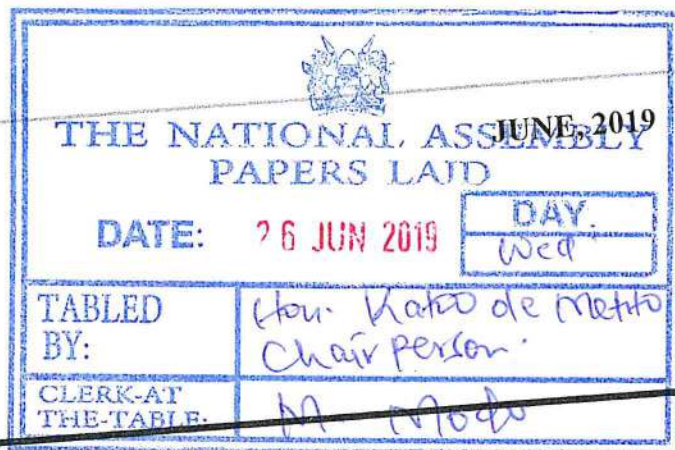 JUNE, 2019
THE NATIONAL ASSEMBLY
PAPERS LAID
DATE: 26 JUN 2019
DAY.
Wed
TABLED BY:
Hon. Katoo de Metito
Chairperson.
CLERK-AT THE-TABLE:
M.